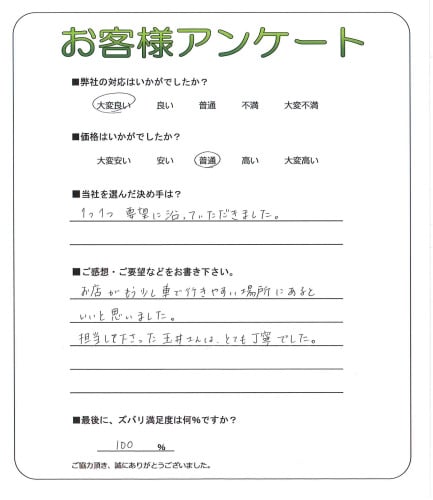 お客様アンケート
■弊社の対応はいかがでしたか？
大変良い 良い 普通 不満 大変不満
■価格はいかがでしたか？
大変安い 安い 普通 高い 大変高い
■当社を選んだ決め手は？
1つ1つ 要望に沿っていただきました。
■ご感想・ご要望などをお書き下さい。
お店がもう少し車で行きやすい場所にあると
いいと思いました。
担当して下さった玉井さんは、とても丁寧でした。
■最後に、ズバリ満足度は何％ですか？
100 ％
ご協力頂き、誠にありがとうございました。